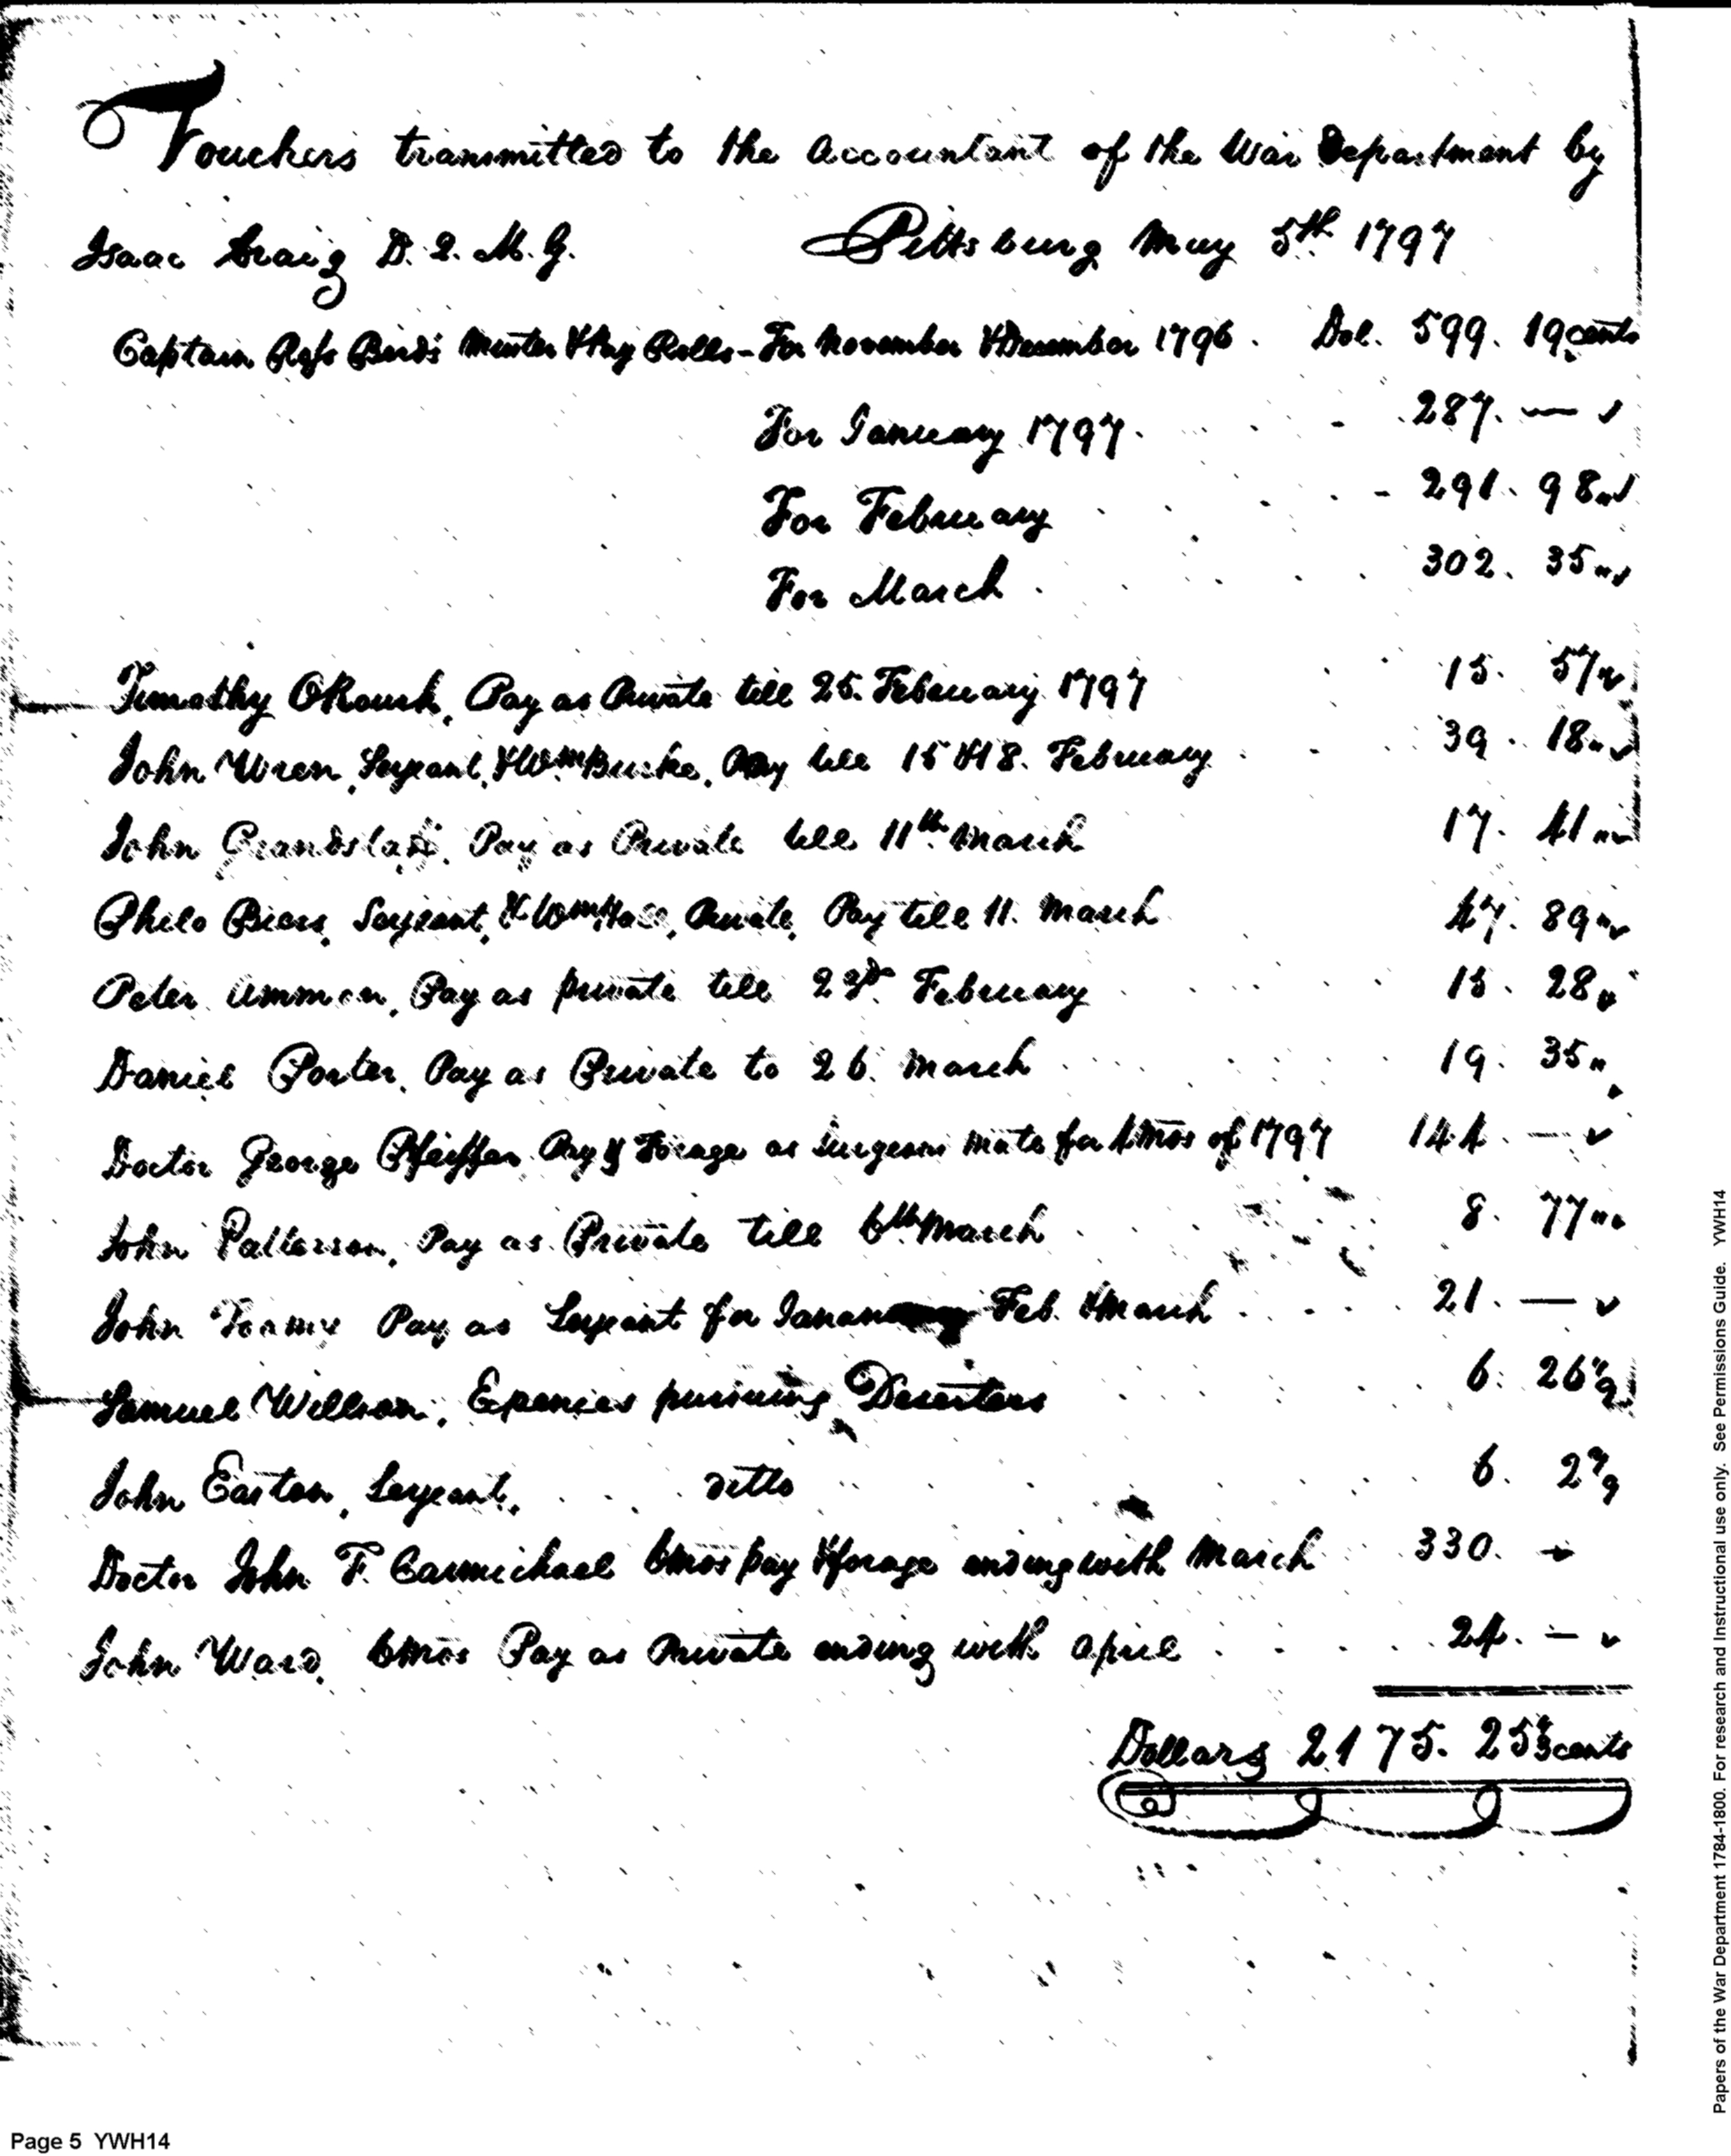 Vouchers transmitted to the Accountant of the War Department by
Isaac Craig D. Q. M. G. Pittsburg May 5th 1797
Captain Ross Bird's Muster & Pay Rolls - For November & December 1796 . Dol. 599. 19 cents
For January 1797 . - 287. —
For February - 291. 98 "
For March . 302. 35 "
Timothy ORourk, Pay as Private till 25. February 1797 15. 57 "
John Wren, Serjeant, & Wm Burke, Pay till 15 & 18. February . 39. 18 "
John Grandstaff, Pay as Private till 11th March 17. 41 "
Philo Biers, Serjeant, & Wm Hall, Private, Pay till 11. March 47. 89 "
Peter Ammon, Pay as private till 23d February 15. 28 "
Daniel Porter, Pay as Private to 26. March 19. 35 "
Doctor George Pfeiffer, Pay & Forage as Surgeons Mate for 4 Mos of 1797 144. —
John Patterson, Pay as Private till 6th March 8. 77 "
John Pay as Serjeant for Feb. & March 21. —
Samuel Willson, Expences pursuing Deserters 6. 26
John Easton, Serjeant, ditto 6. 2
Doctor John F. Carmichael 6 mos pay & forage ending with March 330. —
John Ward, 6 Mos Pay as Private ending with April . 24. —
Dollars 2175. 25 cents
Page 5 YWH14
Papers of the War Department 1784-1800. For research and instructional use only. See Permissions Guide. YWH14